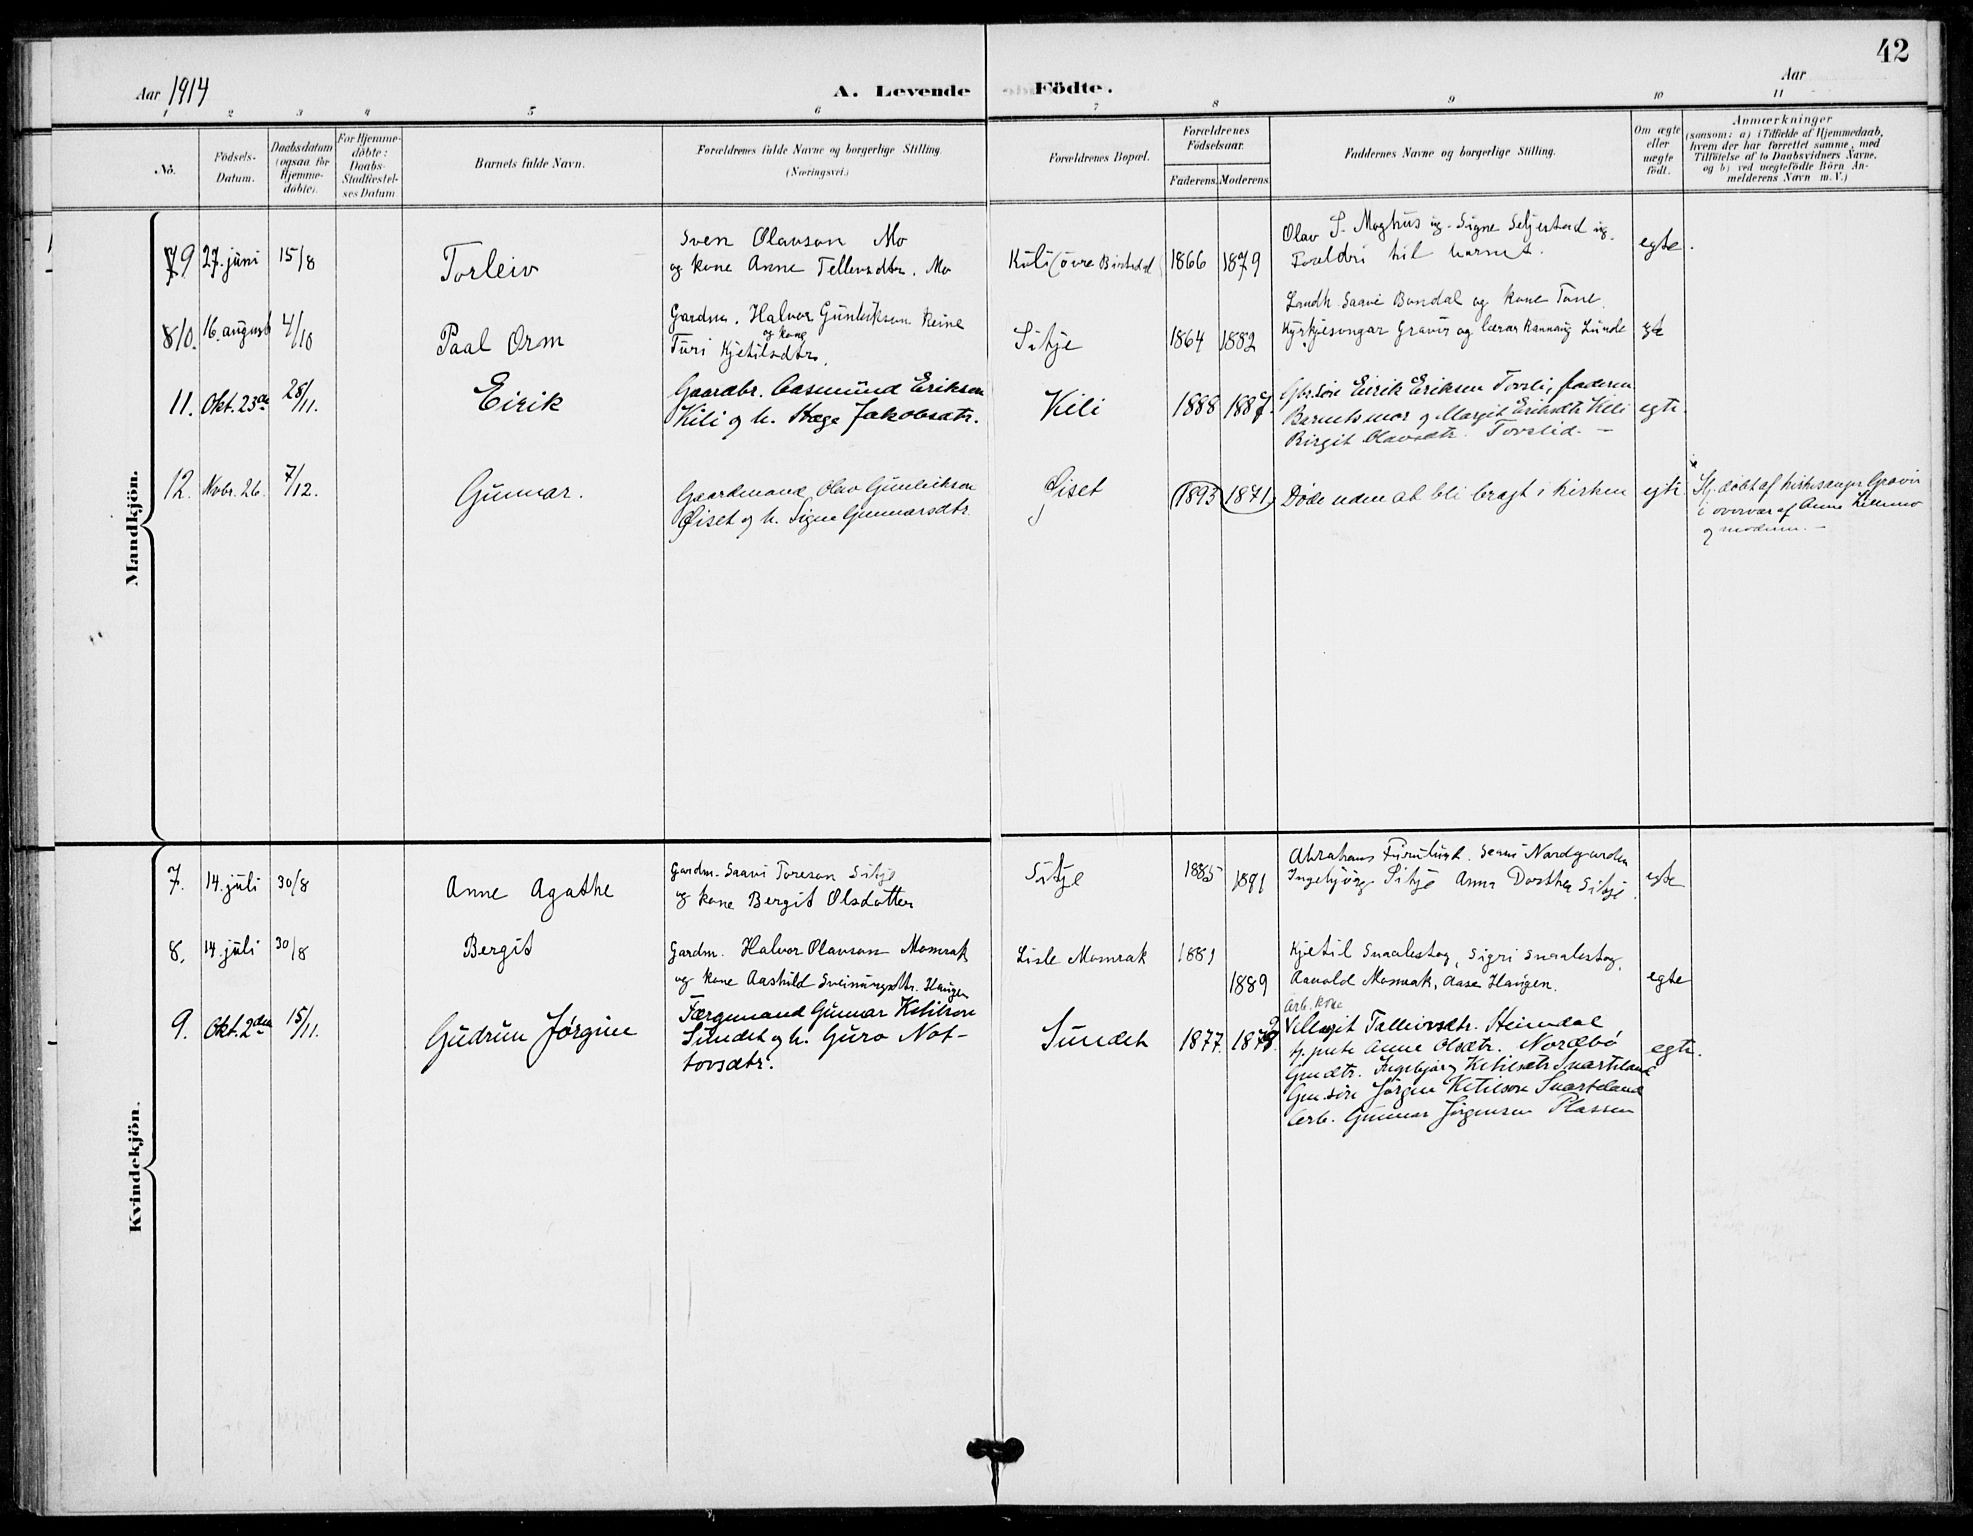 42
Aar 1914
A. Levende Födte.
Aar
1 2 3 4 5 6 7 8 9 10 11
No.
Födsels-
Datum.
Daabsdatum
(ogsaa for
Hjemme-
döbte).
For Hjemme-
döbte:
Daabs-
Stadfæstel-
ses Datum
Barnets fulde Navn.
Forældrenes fulde Navne og borgerlige Stilling.
(Næringsvei.)
Forældrenes Bopæl.
Forældrenes
Födselsaar.
Faderens.
Moderens.
Faddernes Navne og borgerlige Stilling.
Om ægte
eller
uægte
födt.
Anmærkninger
(saasom: a) i Tilfælde af Hjemmedaab,
hvem der har forrettet samme, med
Tilföielse af to Daabsvidners Navne,
og b) ved uægtefödte Börn An-
melderens Navn m. V.)
Mandkjön.
9 27. juni 15/8
Torleiv
Sven Olavson Mo
og kone Anne Tellevsdtr. Mo
Kili (övre Birtedal)
1866 1879
Olav S. Moghus ig. Signe Seljestad ig.
Foreldri til barnet.
egte.
10. 16. august 4/10
Paal Orm
Gardm. Halvor Gunleikson Reine
og kone
Turi Kjetilsdtr.
Sitje
1864 1882
Landh. Saave Bandal og kone Tone.
Kyrkjesongar Gravir og lærar Rannaug Lunde
egte
11. Okt. 23de 28/11.
Eirik
Gaardbr. Aasmund Erikson
Kili og h. Hæge Jakobsdtr.
Kili
1888 1887.
Gbr.søn Eirik Eriksen Tovsli, faderen
Barnets mor og Margit Eriksdtr Kili
Birgit Olavsdtr. Tovslid. —
egte.
12. Novbr. 26. 7/12.
Gunnar.
Gaardmand Olav Gunleikson
Øiset og h. Signe Gunnarsdtr.
Øiset
1893 1871
Døde uden at bli bragt i kirken
egte
Hj.døbt af kirkesanger Gravir
i overvær af Anne
og moderen. —
Kvindekjön.
7. 14. juli 30/8
Anne Agathe
Gardm. Saavi Toreson Sitje
og kone Bergit Olsdotter
Sitje
1885 1891
Abrahams Furulund. Saavi Nordgarden
Ingebjörg Sitje Anna Dorthea Sitje.
egte
8. 14. juli 30/8
Bergit
Gardm. Halvor Olavson Momrak
og kone Aashild Sveinungsdtr. Haugen
Lisle Momrak
1881
1889
Kjetil Snaalestog, Sigri Snaalestog,
Aanold Momrak, Aase Haugen.
egte
9. Okt. 2den 15/11.
Gudrun Jørgine
Færgemand Gunnar Ketilson
Sundet og h. Guro Not-
tovsdtr.
Sundet
1877. 1872
Arb. kone
Vellaug Talleivsdtr. Heimdal,
Tj.pike Anne Olsdtr. Nordbø
Gm.dtr. Ingebjørg Ketilsdtr Svarteland
Gm.søn Jørgen Ketilson Svarteland
Arb. Gunnar Jørgensen Plassen
egte.